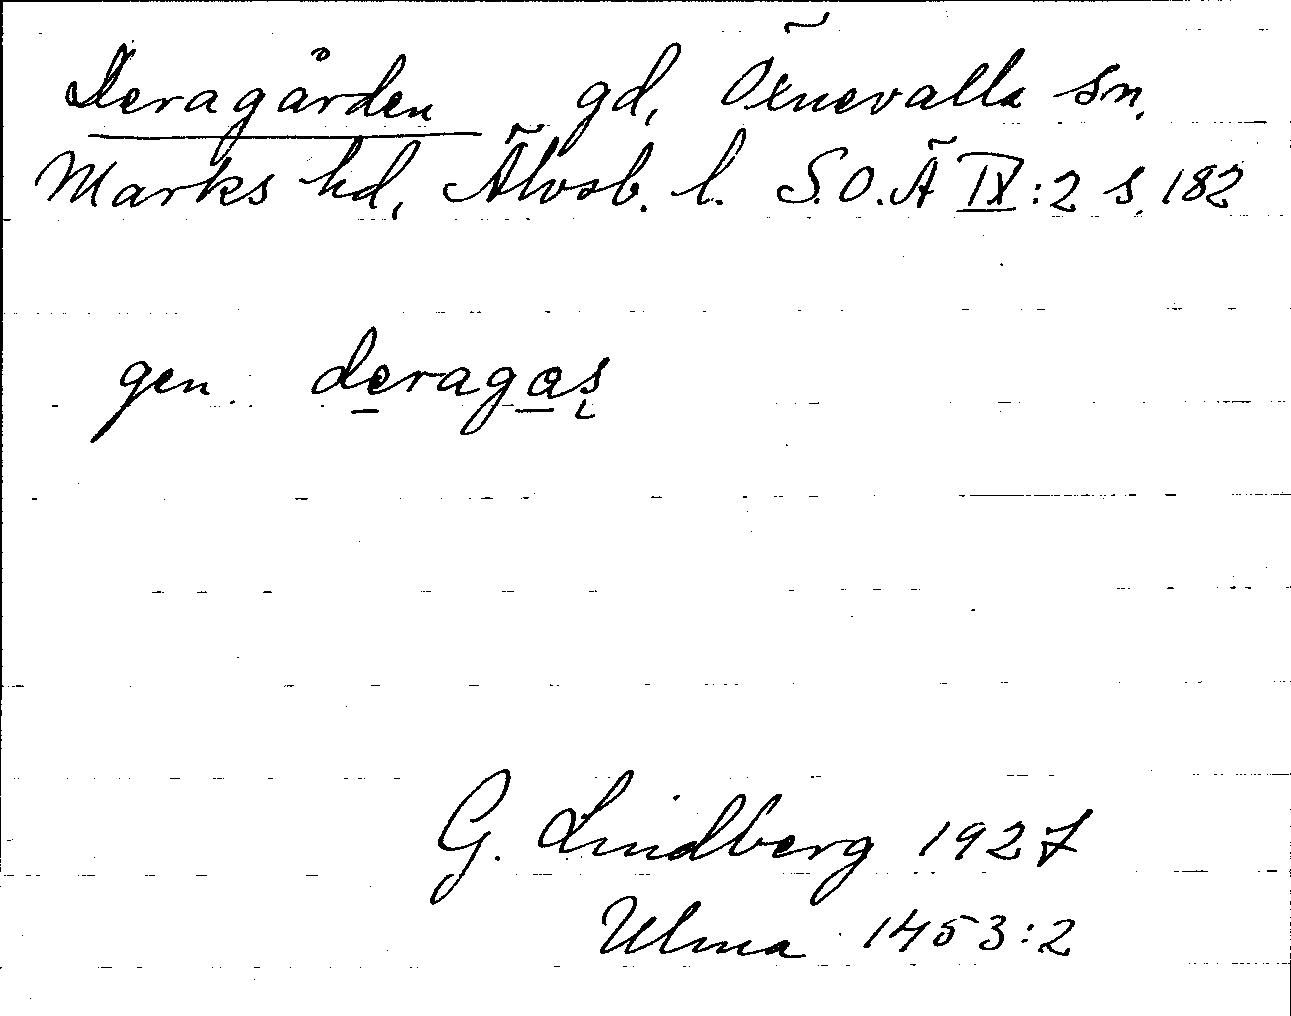 Deragården gd, Öxnevalla sn.
Marks hd, Älvsb. l. S.O.Ä IX:2 s. 182
gen. deragas
G. Lindberg 1927
Ulma 1453:2